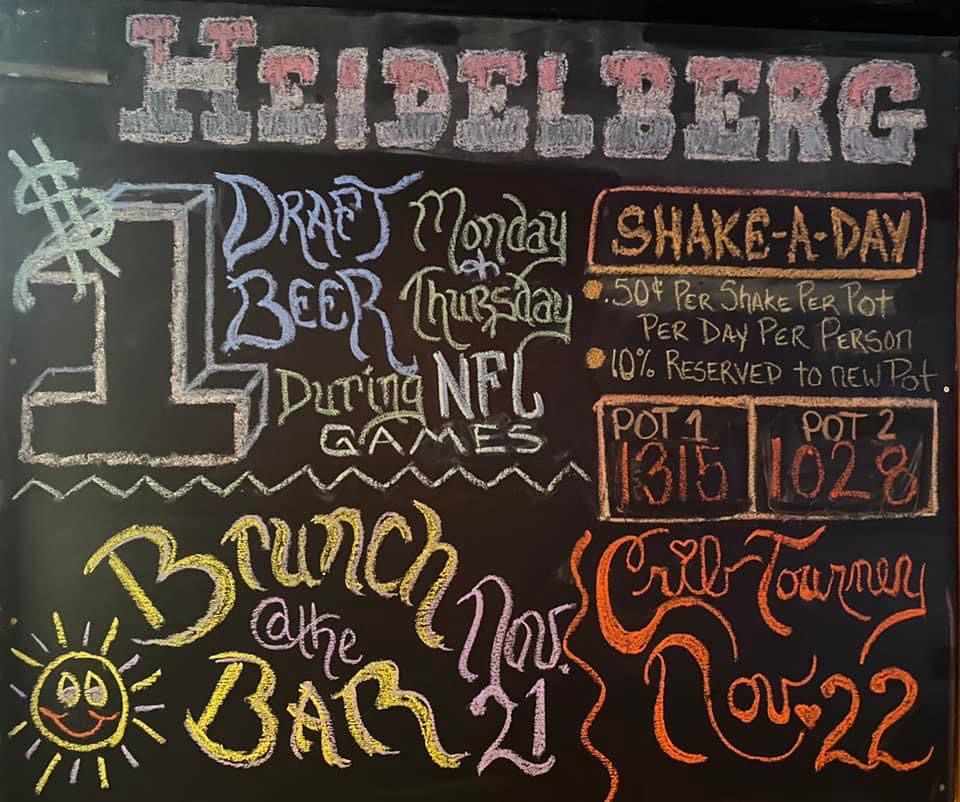 HEIDELBERG
$1
DRAFT
BEER
Monday
Thursday
During NFL
GAMES
SHAKE-A-DAY
.50¢ PER SHAKE PER POT
PER DAY PER PERSON
10% RESERVED TO NEW POT
POT 1
1315
POT 2
1028
Brunch
@the
BAR
Nov.
21
Crib Tourney
Nov. 22